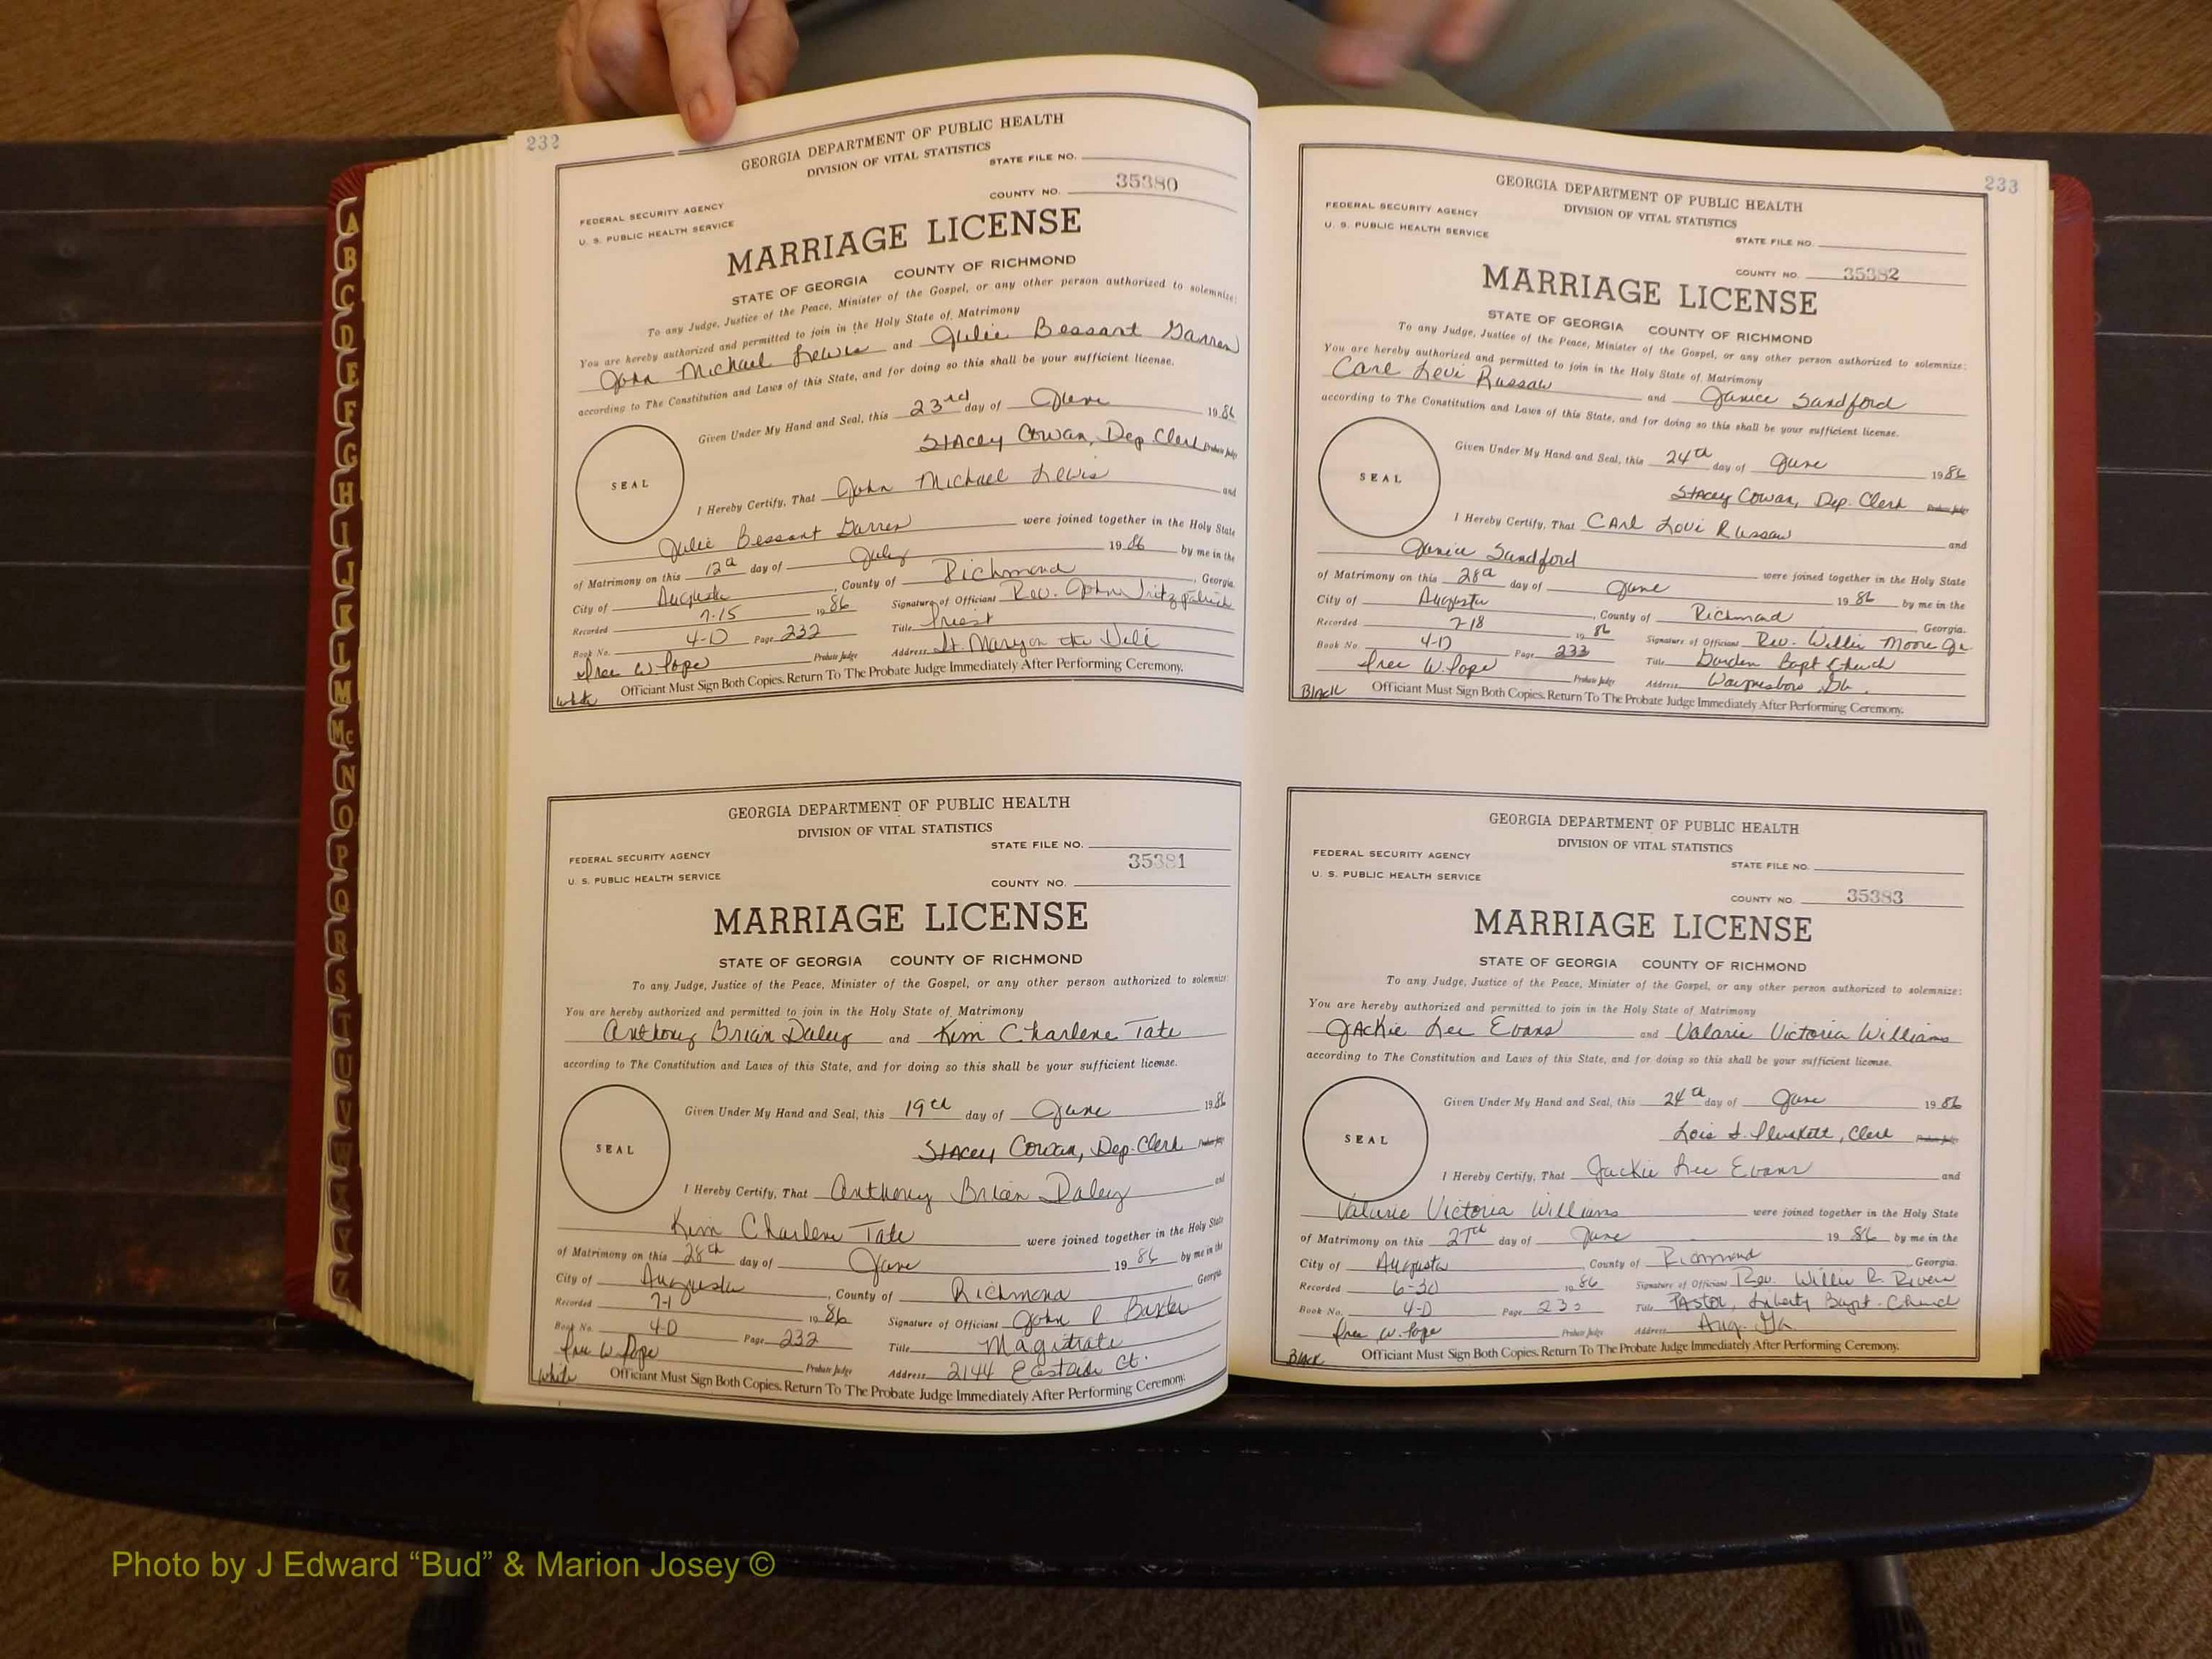 232
GEORGIA DEPARTMENT OF PUBLIC HEALTH
DIVISION OF VITAL STATISTICS
STATE FILE NO.
COUNTY NO. 35380
FEDERAL SECURITY AGENCY
U. S. PUBLIC HEALTH SERVICE
MARRIAGE LICENSE
STATE OF GEORGIA COUNTY OF RICHMOND
To any Judge, Justice of the Peace, Minister of the Gospel, or any other person authorized to solemnize:
You are hereby authorized and permitted to join in the Holy State of Matrimony
John Michael Lewis and Julie Bessant Garren
according to The Constitution and Laws of this State, and for doing so this shall be your sufficient license.
Given Under My Hand and Seal, this 23rd day of June 1986
Stacey Cowan, Dep. Clerk Probate Judge
SEAL
I Hereby Certify, That John Michael Lewis and
Julie Bessant Garren were joined together in the Holy State
of Matrimony on this 12th day of July 1986 by me in the
City of Augusta, County of Richmond, Georgia.
Recorded 7-15 1986 Signature of Officiant Rev. John Fitzpatrick
Book No. 4-D Page 232 Title Priest
W. Pope Probate Judge Address St. Mary on the Hill
White Officiant Must Sign Both Copies. Return To The Probate Judge Immediately After Performing Ceremony.
GEORGIA DEPARTMENT OF PUBLIC HEALTH
DIVISION OF VITAL STATISTICS
STATE FILE NO.
35381
FEDERAL SECURITY AGENCY
U. S. PUBLIC HEALTH SERVICE
COUNTY NO.
MARRIAGE LICENSE
STATE OF GEORGIA COUNTY OF RICHMOND
To any Judge, Justice of the Peace, Minister of the Gospel, or any other person authorized to solemnize:
You are hereby authorized and permitted to join in the Holy State of Matrimony
Anthony Brian Daley and Kim Charlene Tate
according to The Constitution and Laws of this State, and for doing so this shall be your sufficient license.
Given Under My Hand and Seal, this 19th day of June 1986
Stacey Cowan, Dep. Clerk Probate Judge
SEAL
I Hereby Certify, That Anthony Brian Daley and
Kim Charlene Tate were joined together in the Holy State
of Matrimony on this 28th day of June 1986 by me in the
City of Augusta, County of Richmond Georgia
Recorded 7-1 1986 Signature of Officiant John R Baxter
Book No. 4-D Page 232 Title Magistrate
W Pope Probate Judge Address 2144 Eastside Ct.
White Officiant Must Sign Both Copies. Return To The Probate Judge Immediately After Performing Ceremony.
233
GEORGIA DEPARTMENT OF PUBLIC HEALTH
DIVISION OF VITAL STATISTICS
FEDERAL SECURITY AGENCY
U. S. PUBLIC HEALTH SERVICE
STATE FILE NO.
COUNTY NO. 35382
MARRIAGE LICENSE
STATE OF GEORGIA COUNTY OF RICHMOND
To any Judge, Justice of the Peace, Minister of the Gospel, or any other person authorized to solemnize:
You are hereby authorized and permitted to join in the Holy State of Matrimony
Carl Levi Russaw and Janice Sandford
according to The Constitution and Laws of this State, and for doing so this shall be your sufficient license.
Given Under My Hand and Seal, this 24th day of June 1986
Stacey Cowan, Dep. Clerk Probate Judge
SEAL
I Hereby Certify, That Carl Levi Russaw and
Janice Sandford were joined together in the Holy State
of Matrimony on this 28th day of June 1986 by me in the
City of Augusta, County of Richmond, Georgia.
Recorded 7-18 1986 Signature of Officiant Rev. Willie Moore Jr
Book No. 4-D Page 233 Title Bapt Church
W. Pope Probate Judge Address Waynesboro, Ga.
Black Officiant Must Sign Both Copies. Return To The Probate Judge Immediately After Performing Ceremony.
GEORGIA DEPARTMENT OF PUBLIC HEALTH
DIVISION OF VITAL STATISTICS
FEDERAL SECURITY AGENCY
U. S. PUBLIC HEALTH SERVICE
STATE FILE NO.
COUNTY NO. 35383
MARRIAGE LICENSE
STATE OF GEORGIA COUNTY OF RICHMOND
To any Judge, Justice of the Peace, Minister of the Gospel, or any other person authorized to solemnize:
You are hereby authorized and permitted to join in the Holy State of Matrimony
Jackie Lee Evans and Valarie Victoria Williams
according to The Constitution and Laws of this State, and for doing so this shall be your sufficient license.
Given Under My Hand and Seal, this 24th day of June 1986
Lois Plunkett, Clerk Probate Judge
SEAL
I Hereby Certify, That Jackie Lee Evans and
Valarie Victoria Williams were joined together in the Holy State
of Matrimony on this 27th day of June 1986 by me in the
City of Augusta, County of Richmond, Georgia.
Recorded 6-30 1986 Signature of Officiant Rev. Willie R. Rivers
Book No. 4-D Page 233 Title Pastor, Liberty Bapt. Church
W. Pope Probate Judge Address Aug. Ga
Black Officiant Must Sign Both Copies. Return To The Probate Judge Immediately After Performing Ceremony.
A
B
C
D
E
F
G
H
I
J
K
L
M
Mc
N
O
P
Q
R
S
T
U
V
W
X
Y
Z
Photo by J Edward “Bud” & Marion Josey ©